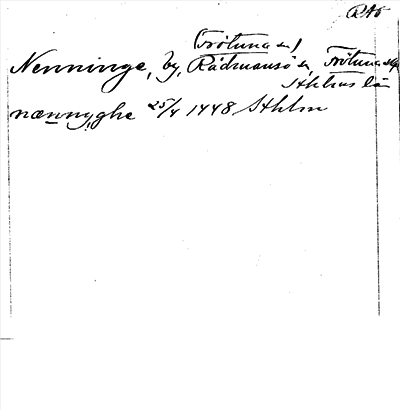 RAp
(Frötuna sn)
Nenninge, by, Rådmansö sn, Frötuna skg
Sthlms län
nænnyghe 25/4 1448 Sthlm